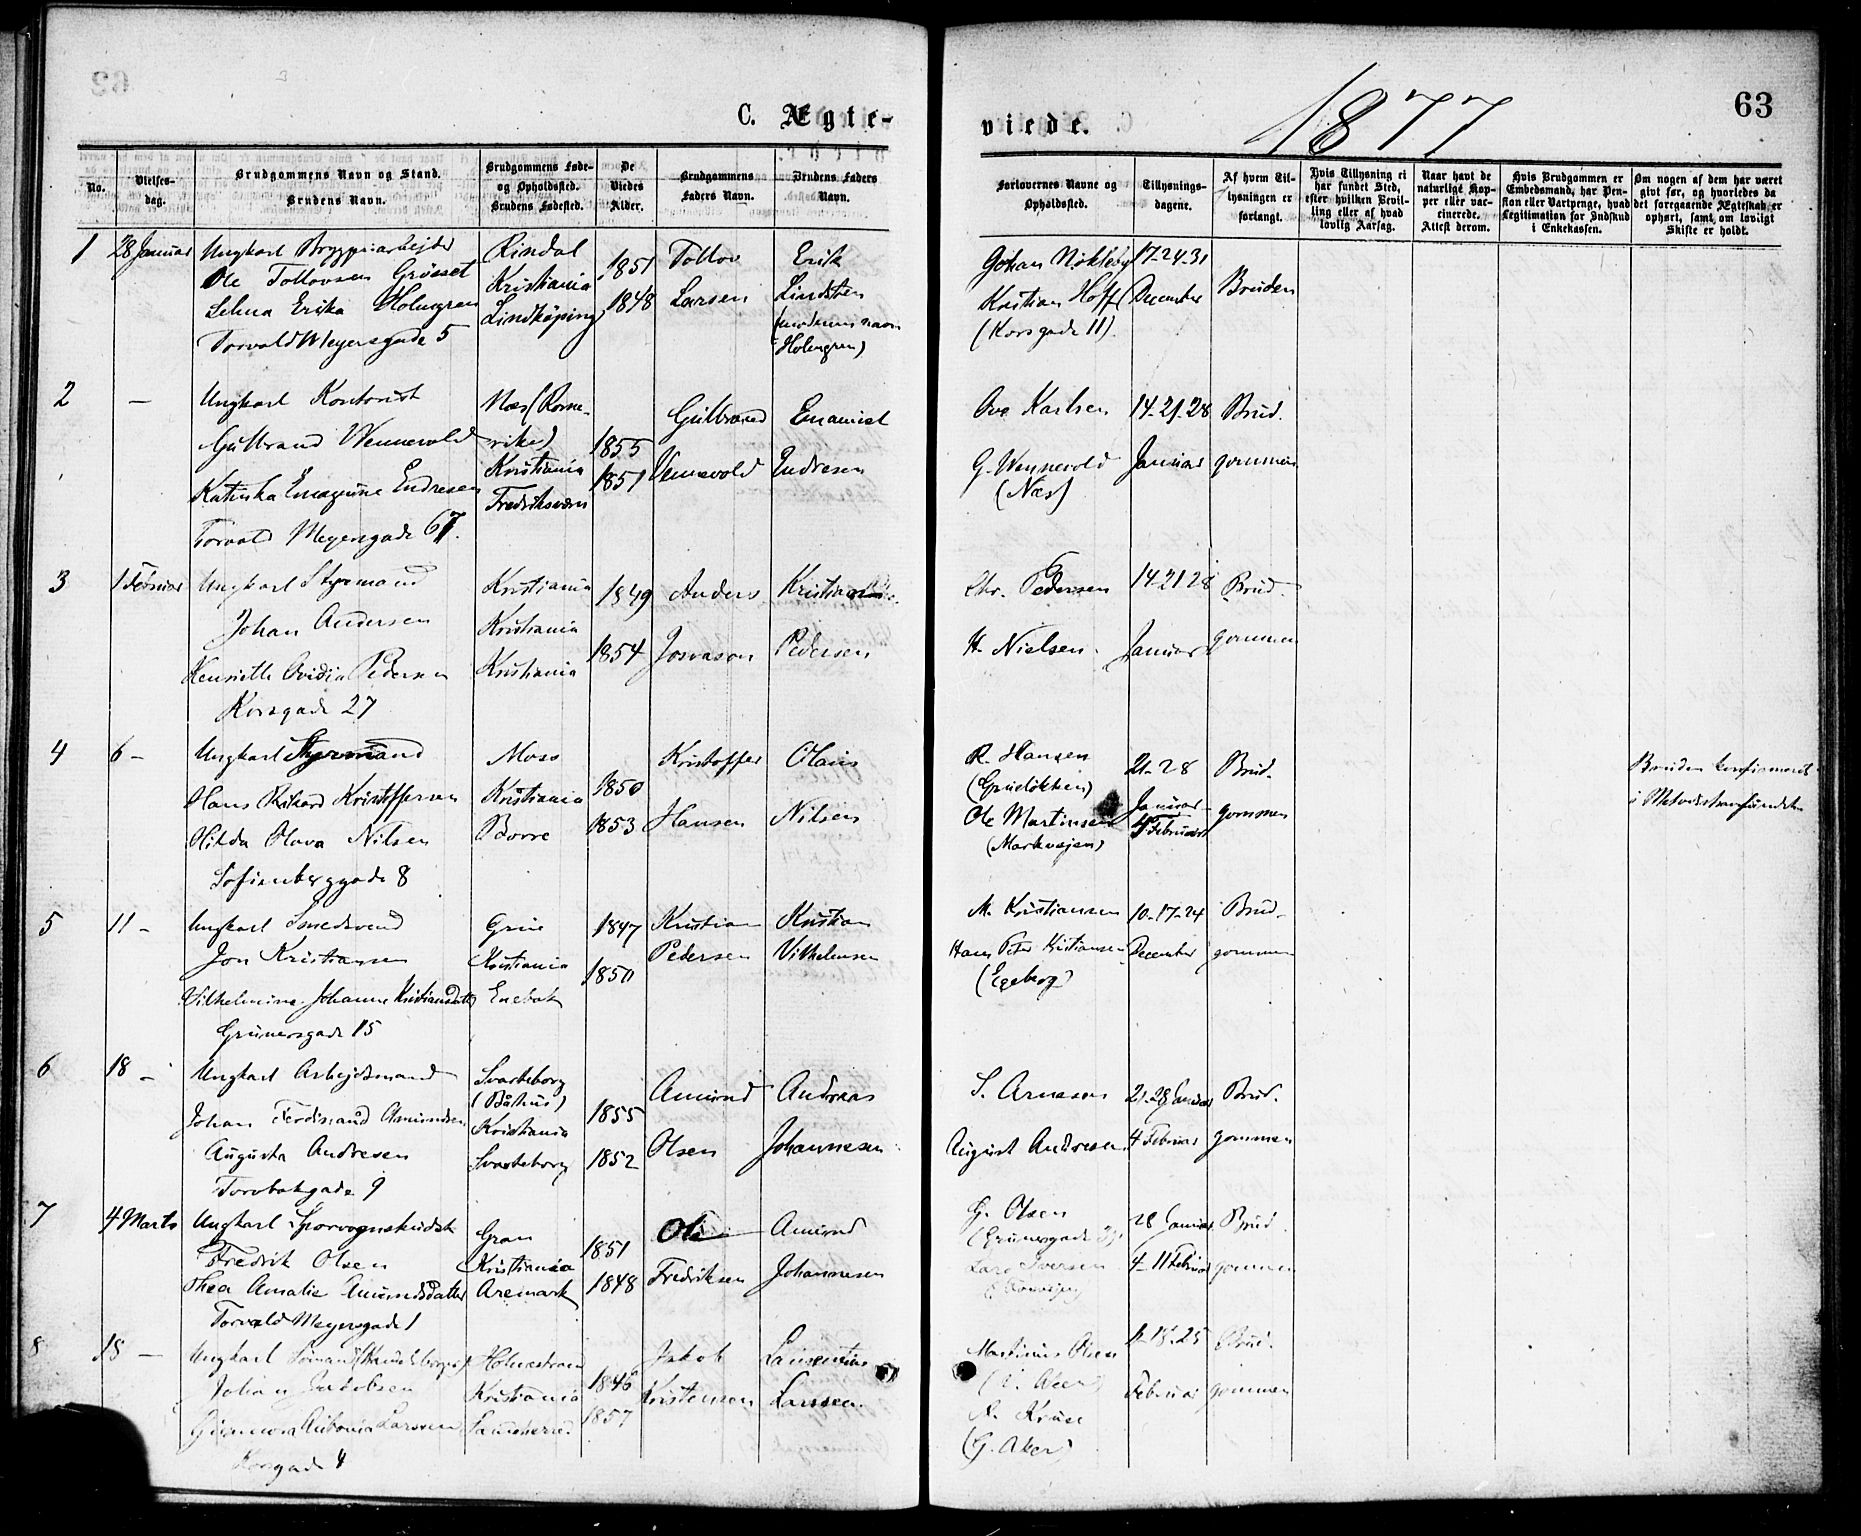 63
C. Ægte-
viede.
1877
No.
Vielses-
dag.
Brudgommens Navn og Stand.
Brudens Navn.
Brudgommens Føde-
og Opholdssted.
Brudens Fødested.
De
Viedes
Alder.
Brudgommens
Faders Navn.
Brudens Faders
Navn.
Forlovernes Navne og
Opholdssted.
Tillysnings-
dagene.
Af hvem Til-
lysningen er
forlangt.
Hvis Tillysning ei
har fundet Sted,
efter hvilken Bevil-
ling eller af hvad
lovlig Aarsag.
Naar havt de
naturlige Kop-
per eller vac-
cinerede.
Attest derom.
Hvis Brudgommen er
Embedsmand, har Pen-
sion eller Vartpenge, hvad
Legitimation for Indskud
i Enkekassen.
Om nogen af dem har været
gift før, og hvorledes da
det foregaaende Ægteskab er
ophørt, samt om lovligt
Skifte er holdt.
1
28 Januar
Ungkarl Bryggeriarbejder
Ole Tollovsen Grösset
Selma Erika Holmgren
Torvald Meyersgade 5
Rindal
Kristiania
Lindköping
1851
1848
Tollov
Larsen
Erik
Lindsten
(moderens navn
Holmgren)
Johan Nökleby
Kristian Hoff
(Korsgade 11)
17-24-31
December
Bruden
2
—
Ungkarl Kontorist
Gulbrand Wennevold
Katinka Emagine Endresen
Torvald Meyersgade 67.
Næs (Rome-
rike)
Kristiania
Fredriksværn
1855
1851
Gulbrand
Vennevold
Emanuel
Endresen
Ove Karlsen
G. Wennevold
(Næs)
14-21-28
Januar
Brud-
gommen
3
1 Februar
Ungkarl Styrmand
Johan Andersen
Henriette Ovidia Pedersen
Korsgade 27
Kristiania
Kristiania
Kristiania
1849
1854
Anders
Josvason
Kristian
Pedersen
Chr. Pedersen
H. Nielsen
14-21 28
Januar
Brud-
gommen
4
6 —
Ungkarl Styrmand
Hans Rikard Kristoffersen
Hilda Olava Nilsen
Sofienberggade 8
Moss
Kristiania
Borre
1850
1853
Kristoffer
Hansen
Olaus
Nilsen
R. Hansen
(Grüeløkken)
Ole Martinsen
(Markvejen)
21-28
Januar
4 Februar
Brud-
gommen
Bruden konfirmeret
i Metodistsamfundet
5
11 —
Ungkarl Smedsvend
Jon Kristiansen
Vilhelmine Johanne Kristiansdatter
Grünersgade 15
Grue
Kristiania
Enebak
1847
1850
Kristian
Pedersen
Kristian
Vilhelmsen
M. Kristiansen
Hans Peter Kristiansen
(Egeberg)
10-17-24
December
Brud-
gommen
6
18 —
Ungkarl Arbejdsmand
Johan Ferdinand Amundsen
Augusta Andresen
Torvbakgade 9
Svarteborg
(Båhus)
Kristiania
Svarteborg
1855
1852
Amund
Olsen
Andreas
Johannesen
S. Arnesen
August Andresen
21-28 Januar
4 Februar
Brud-
gommen
7
4 Marts
Ungkarl Sporvognskudsk
Fredrik Olsen
Thea Amalie Amundsdatter
Torvald Meyersgade 1
Gran
Kristiania
Aremark
1851
1848
Ole
Fredriksen
Amund
Johannesen
G. Olsen
Lars Iversen
28 Januar
4-11 Februar
Brud-
gommen
8
18 —
Ungkarl Sømand
Johan Jakobsen
Antonia Larsen
Korsgade 4
Holmestrand
Kristiania
1846
1857
Jakob
Kristensen
Laurentius
Larssen
Martinus Olsen
(V. Aker)
N. Kruse
(G. Aker)
11-18-25
Februar
Brud-
gommen